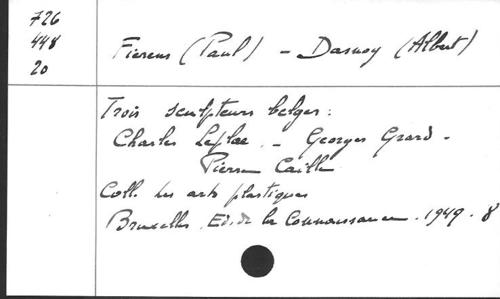 726
448
20
Fierens (Paul) - Dasnoy (Albert)
Trois sculpteurs belges :
Charles Leplae. - Georges Grard -
Pierre Caille
Coll. Les arts plastiques
Bruxelles, Ed. de la Connaissance. 1949. 8